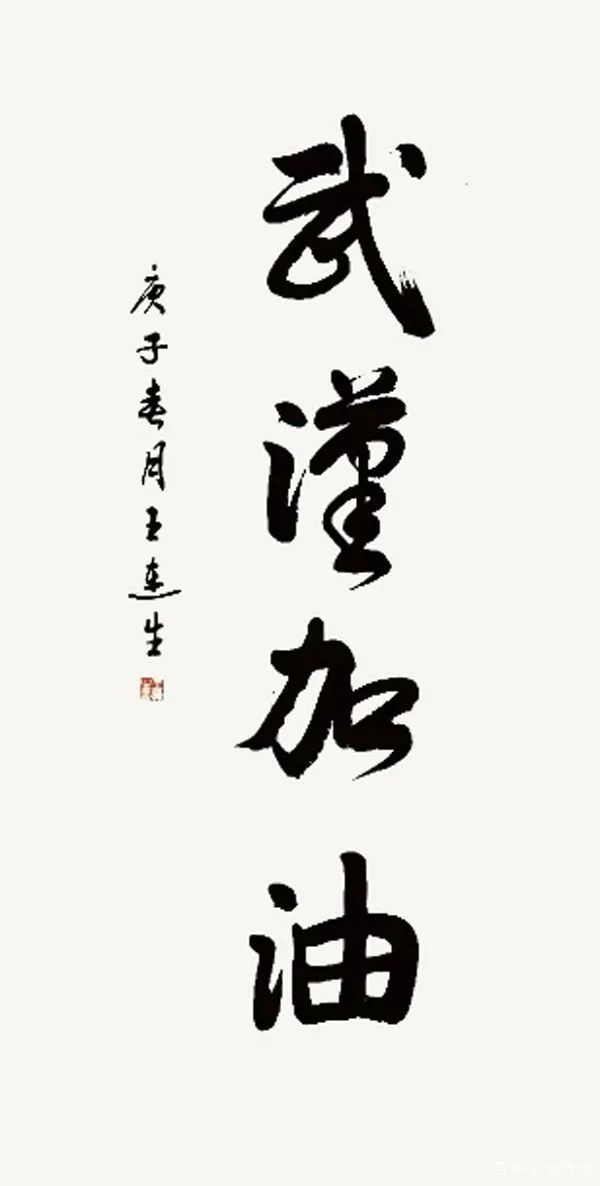 武漢加油
庚子春月王連生